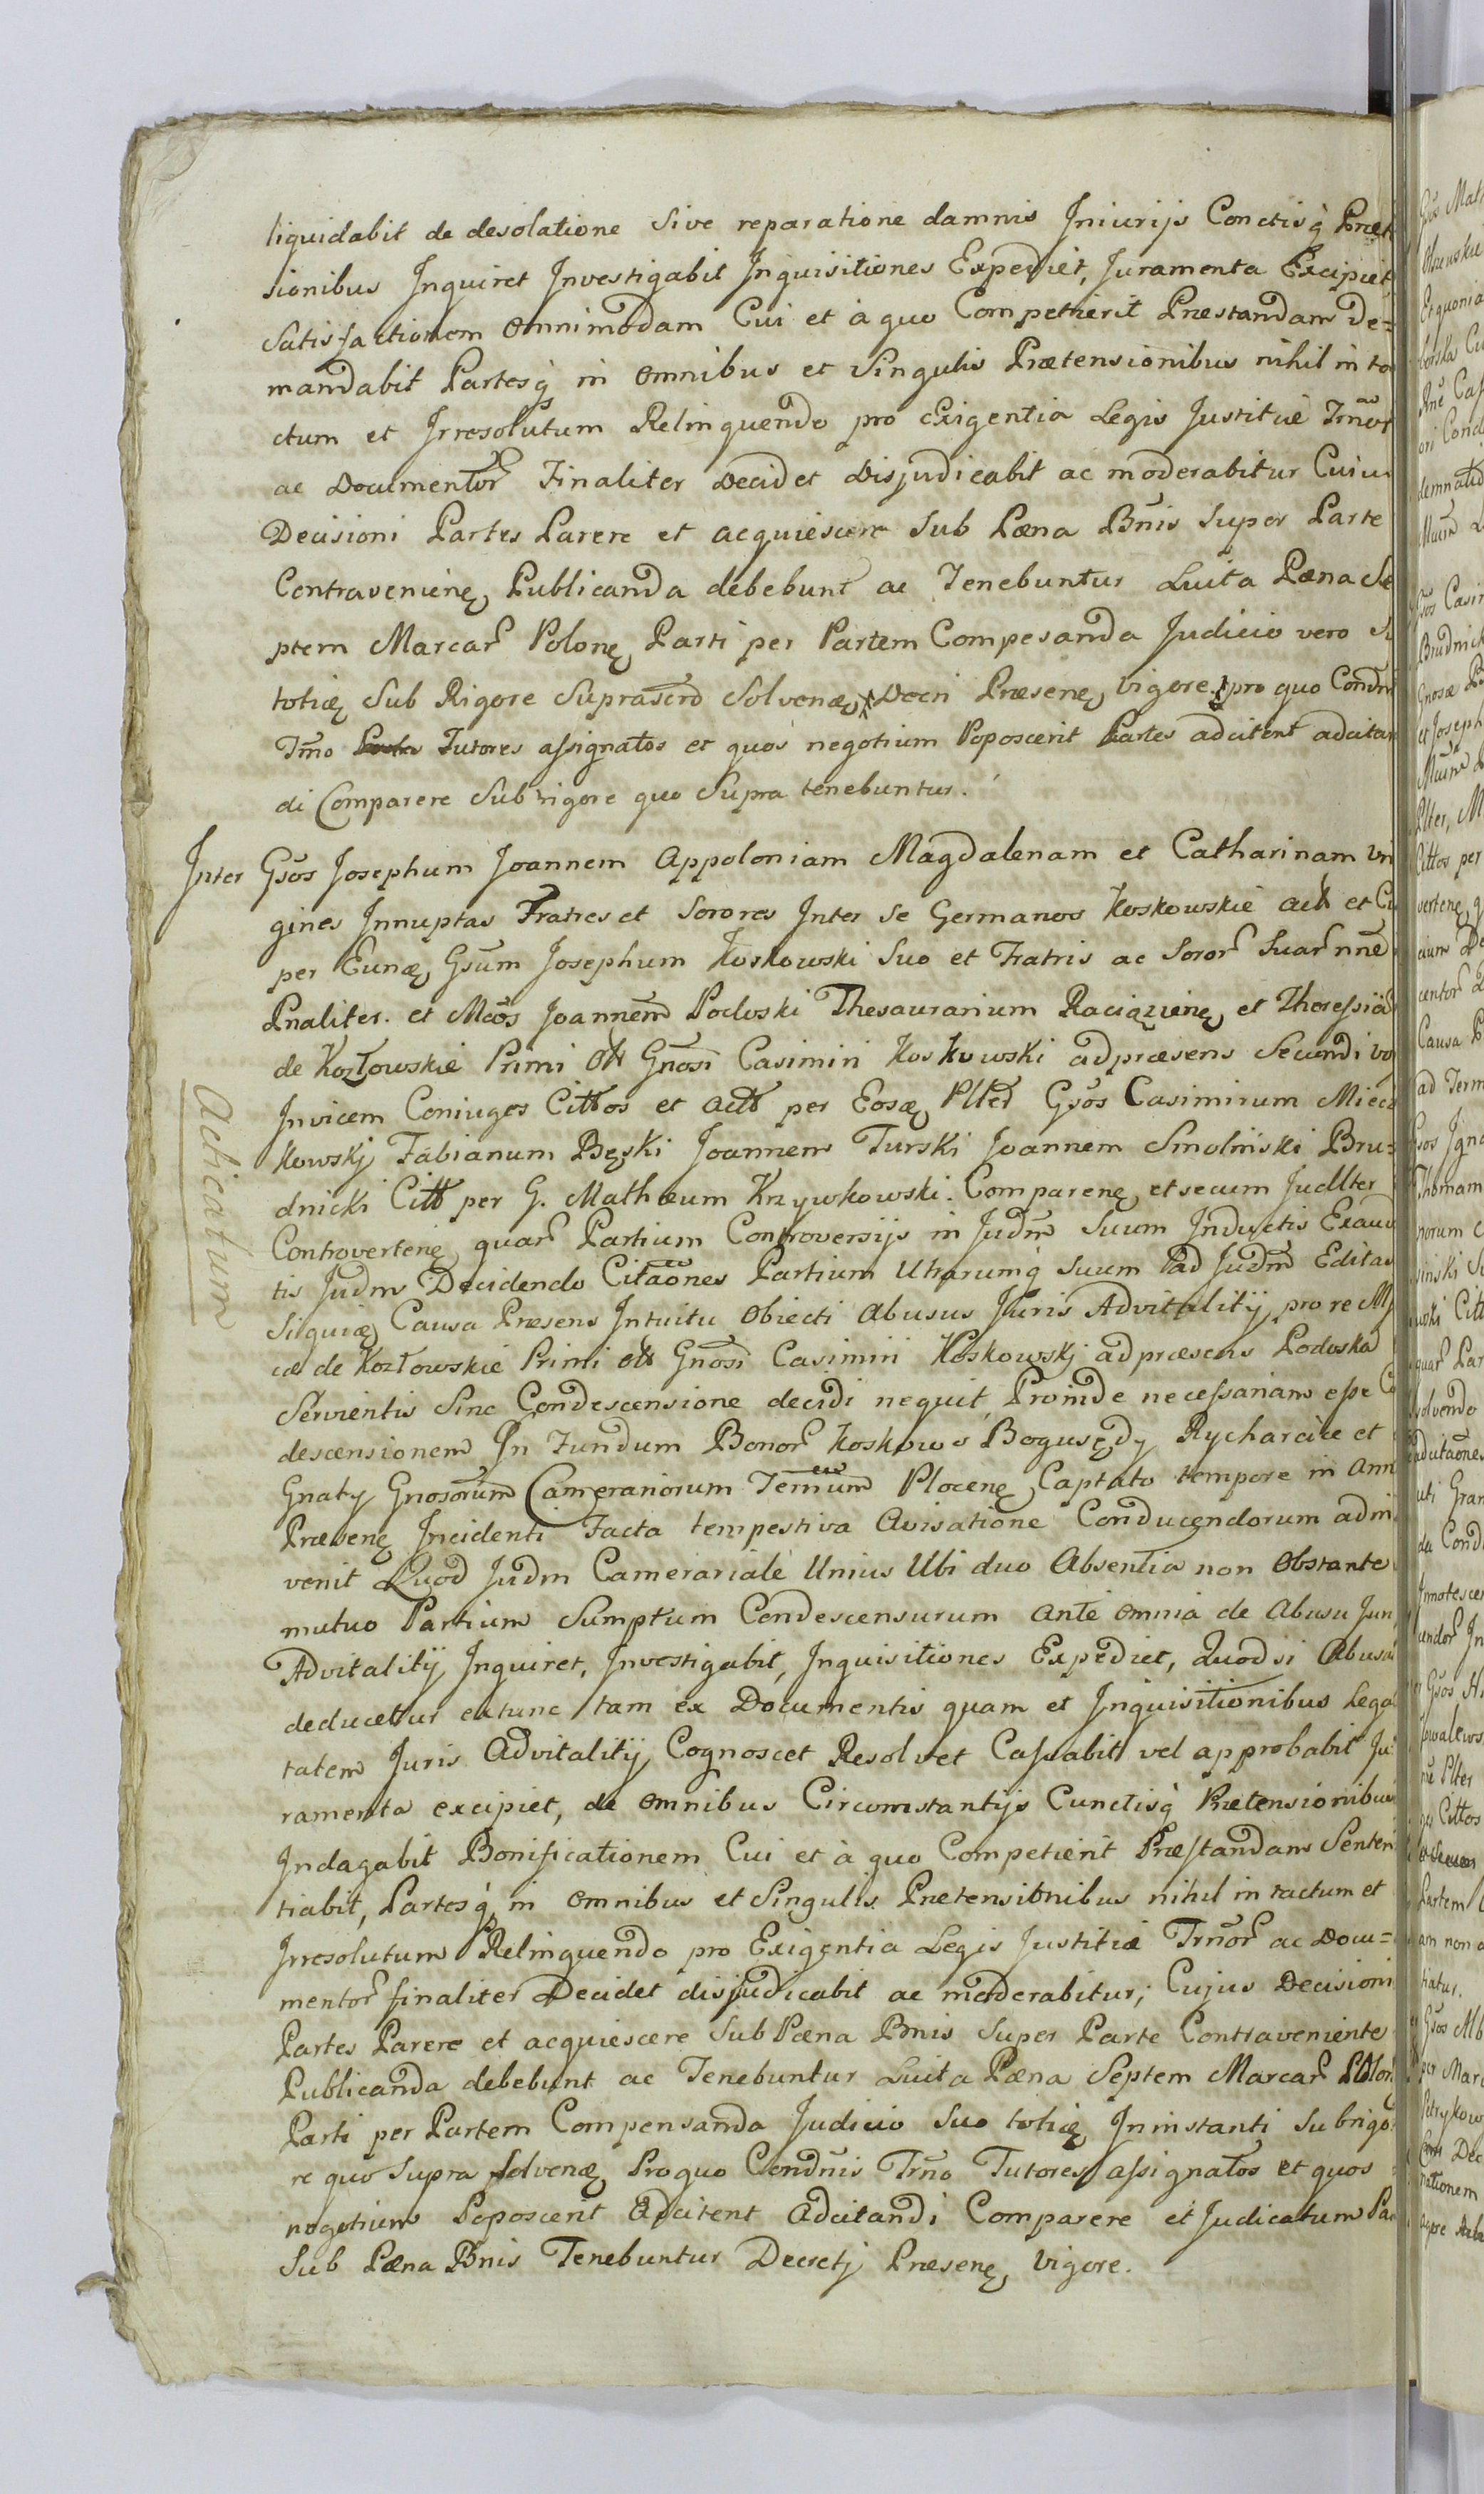 liquidabit de desolatione Sive reparatione damnis Jniurijs Conctisq̀ Præt
sionibus Jnquiret Jnvestigabit Jnquisitiones Expediet, Juramenta Excipiet
Satisfactionem Omnimodam Cui et à quo Competierit Præstandam De=
mandabit Partesq̀ in Omnibus et Singulis Prætensionibus nihil in ta
ctum et Jrresolutum Relinquendo pro Exigentia Legis Justitiæ Trnor
ac Documentor Finaliter Decidet Disjudicabit ac moderabitur Cuius
Decisioni Partes Parere et acquiescere Sub Pæna Bnis Super Parte
Contravenienę, Publicanda debebunt ac Tenebuntur Luita Pæna Se
ptem Marcar Polonę, Parti per Partem Compesanda Judicio vero Su
totię Sub Rigore Suprascrō Solvenæ, Decri Præsenę, Vigore pro quo Condni
Trño Tutores assignatos et quos negotium Poposcerit Partes adcitent adcitan
di Comparere Sub rigore quo Supra tenebuntur.
Jnter Gsos Josephum Joannem Appoloniam Magdalenam et Catharinam Vir
gines Jnnuptas Fratres et Sorores Jnter Se Germanos Koskowskie act et Ci
per Eunæ, Gsum Josephum Koskowski Suo et Fratris ac Soror Suar nne
Pnaliter. et Mcos Joannem Podoski Thesaurarium Raciążienę, et Theressia
de Kozłowskie Primi ott Gnosi Casimiri Koskowski adpræsens Secundi vo
Jnvicem Coniuges Cittos et actt per Eosæ, Plted Gsos Casimirum Miecz
kowskj Fabianum Bęski Joannem Turski Joannem Smoliński Bru=
dnicki Citt per G. Mathæum Krzywkowski. Comparenę, et secum Judlter
Controvertenę, quar Partium Controversijs in Judm Suum Jnductis Exaud
tis Judm Decidendo Citaones Partium Utrarumq̀ Suum Pad Judm Editas
Siquię, Causa Præsens Jntuitu Obiecti abusus Juris Advitalitij, pro re M
cæ de Kozłowskie Primi ott Gnosi Casimiri Koskowskj adpræsens Podoska
Servientis Sine Condescensione decidi nequit, Proinde necessariam esse Co
descensionem Jn Fundum Bonor Koskowo Bogusędy Rycharcice et
Gnaty Gnosorum Camerariorum Terrium Plocenę, Captato tempore in Ann
Præsenę Jncidenti Facta tempestiva Avisatione Conducendorum adin
venit Quod Judm Camerariale Unius Ubi duo Absentia non Obstante
mutuo Partium Sumptum Condescensurum ante omnia de Abusu Jur
Advitalitij Jnquiret, Jnvestigabit, Jnquisitiones Expediet, Quodsi Abusus
deducetur extunc tam ex Documentis quam et Jnquisitionibus Lega
tatem Juris Advitalitij, Cognoscet Resolvet Cassabit vel approbabit Ju
ramenta excipiet, de Omnibus Circumstantijs Cunctisq̀ Prætensionibus
Jndagabit Bonificationem Cui et à quo Competierit Præstandam Senten
tiabit, Partesq̀, in Omnibus et Singulis Prætensionibus nihil in tactum et
Jrresolutum Relinquendo pro Exigentia Legis Justitiæ Trnor ac Docu=
mentor finaliter Decidet disjudicabit ac moderabitur; Cujus Decisioni
Partes Parere et acquiescere Sub Pæna Bnis Super Parte Contraveniente
Publicanda debebunt ac Tenebuntur Luita Pæna Septem Marcar Polon
Parti per Partem Compensanda Judicio Suo totię, Jninstanti Subrigo
re quo Supra Solvenę Proquo Condnis Trno Tutores assignatos et quos
negotium Poposcerit Adcitent Adcitandi Comparere et Judicatum Pa
Sub Pæna Bnis Tenebuntur Decretj Præsenę, Vigore.
Acticatum